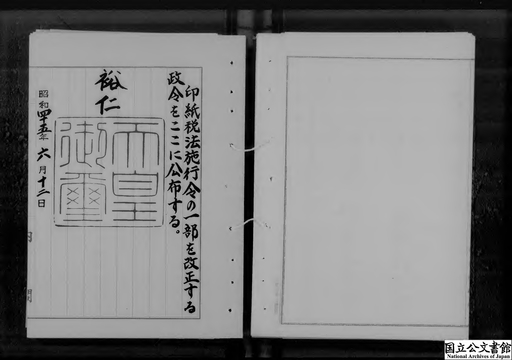 印紙税法施行令の一部を改正する
政令をここに公布する。
裕仁
天皇
御璽
昭和四十五年六月十二日
国立公文書館
National Archives of Japan